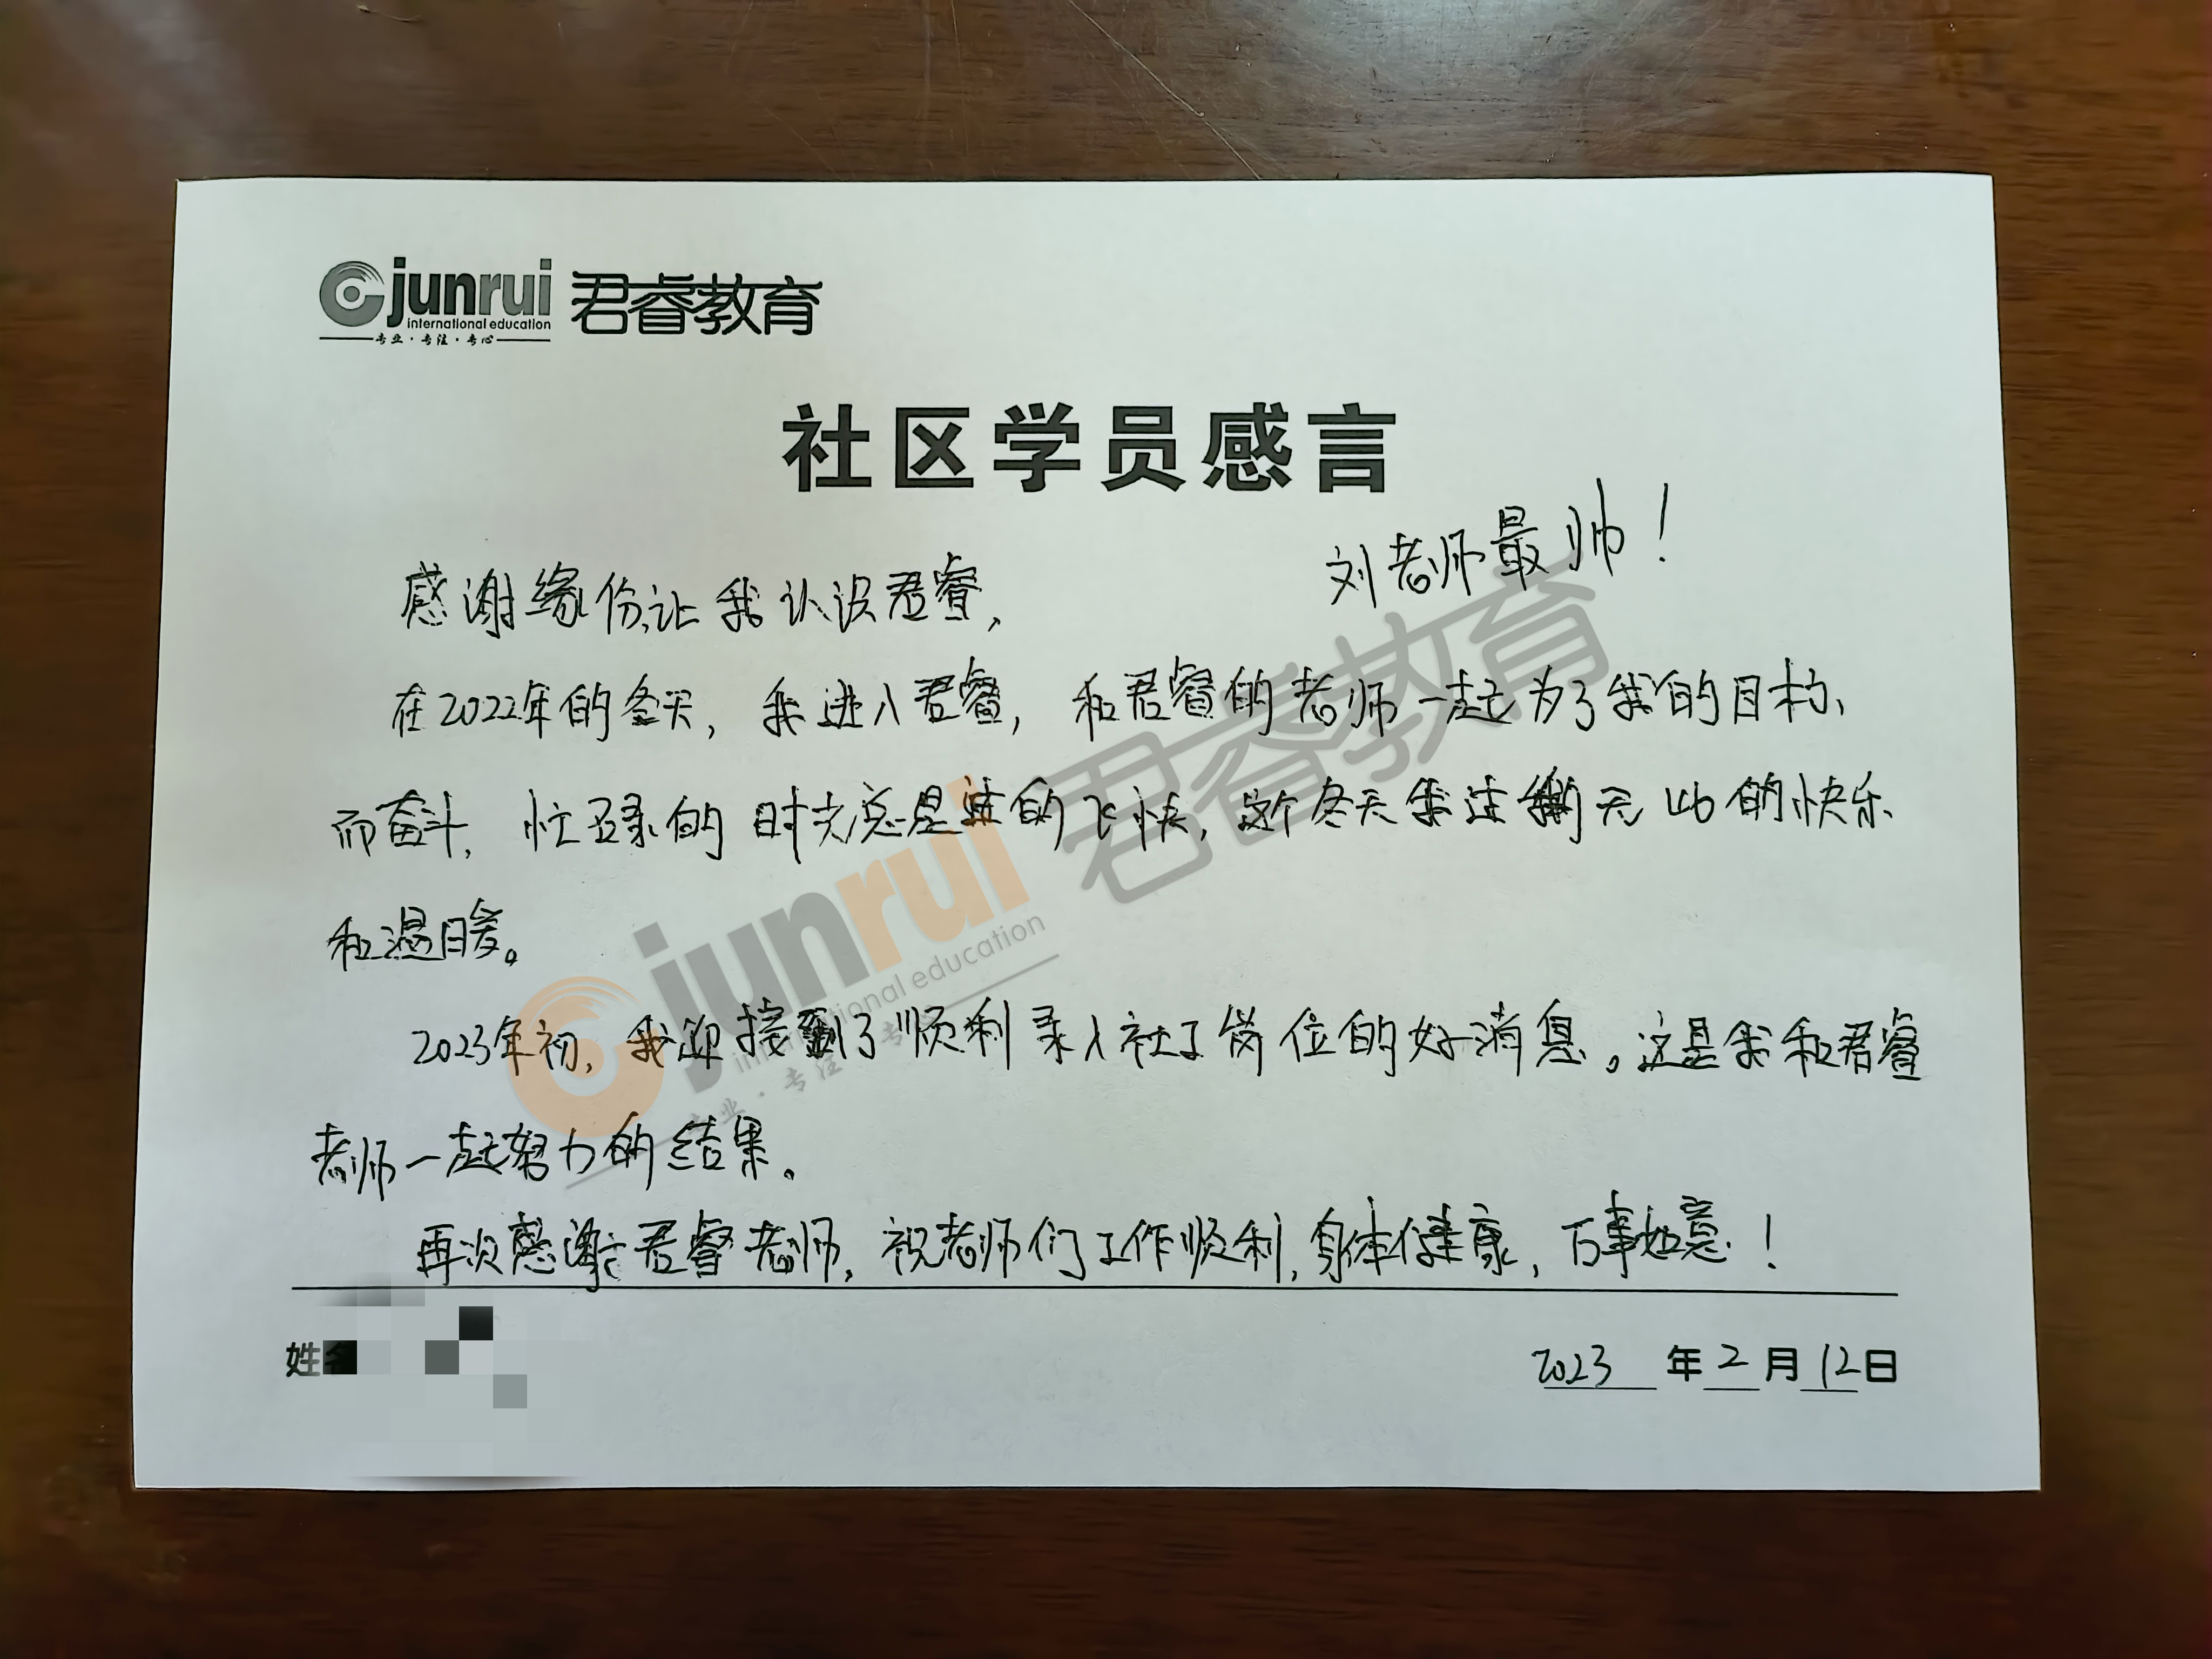 junrui 君睿教育
international education
专业·专注·专心
社区学员感言
刘老师最帅！
感谢缘份,让我认识君睿，
在2022年的冬天，我进入君睿，和君睿的老师一起为了我的目标、
而奋斗，忙碌的时光总是过的飞快，这个冬天我过得无比的快乐
和温暖。
2023年初，我迎接到了顺利录入社工岗位的好消息。这是我和君睿
老师一起努力的结果。
再次感谢君睿老师，祝老师们工作顺利，身体健康，万事如意！
姓名
2023年2月12日
junrui 君睿教育
international education
专业·专注·专心